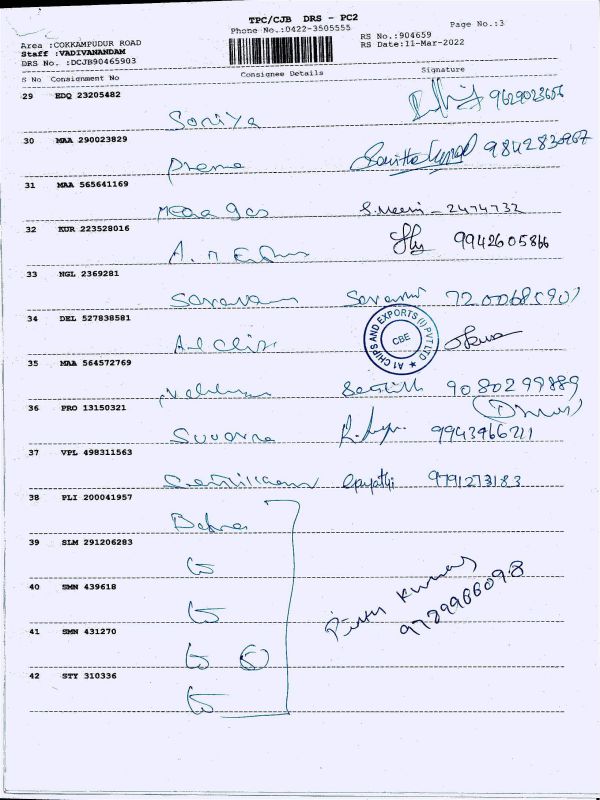 TPC/CJB DRS - PC2
Phone No.:0422-3505555
Page No.:3
Area :COKKAMPUDUR ROAD
RS No.:904659
Staff :VADIVANANDAM
RS Date:11-Mar-2022
DRS No. :DCJB90465903
S No Consignment No Consignee Details Signature
29 EDQ 23205482
Soniya 9629023656
30 MAA 290023829
Prema 9842830967
31 MAA 565641169
Mega gas S.Meeni - 2474732
32 KUR 223528016
A. M 9942605866
33 NGL 2369281
Saravana Saravani
34 DEL 527838581
A1 Chips
A1 CHIPS AND EXPORTS (I) PVT LTD
CBE
35 MAA 564572769
Senthil 9080299889
36 PRO 13150321
Suvarna 9943966211
37 VPL 498311563
9791273183
38 PLI 200041957
39 SLM 291206283
40 SMN 439618
Kumar
9789966098
41 SMN 431270
42 STY 310336